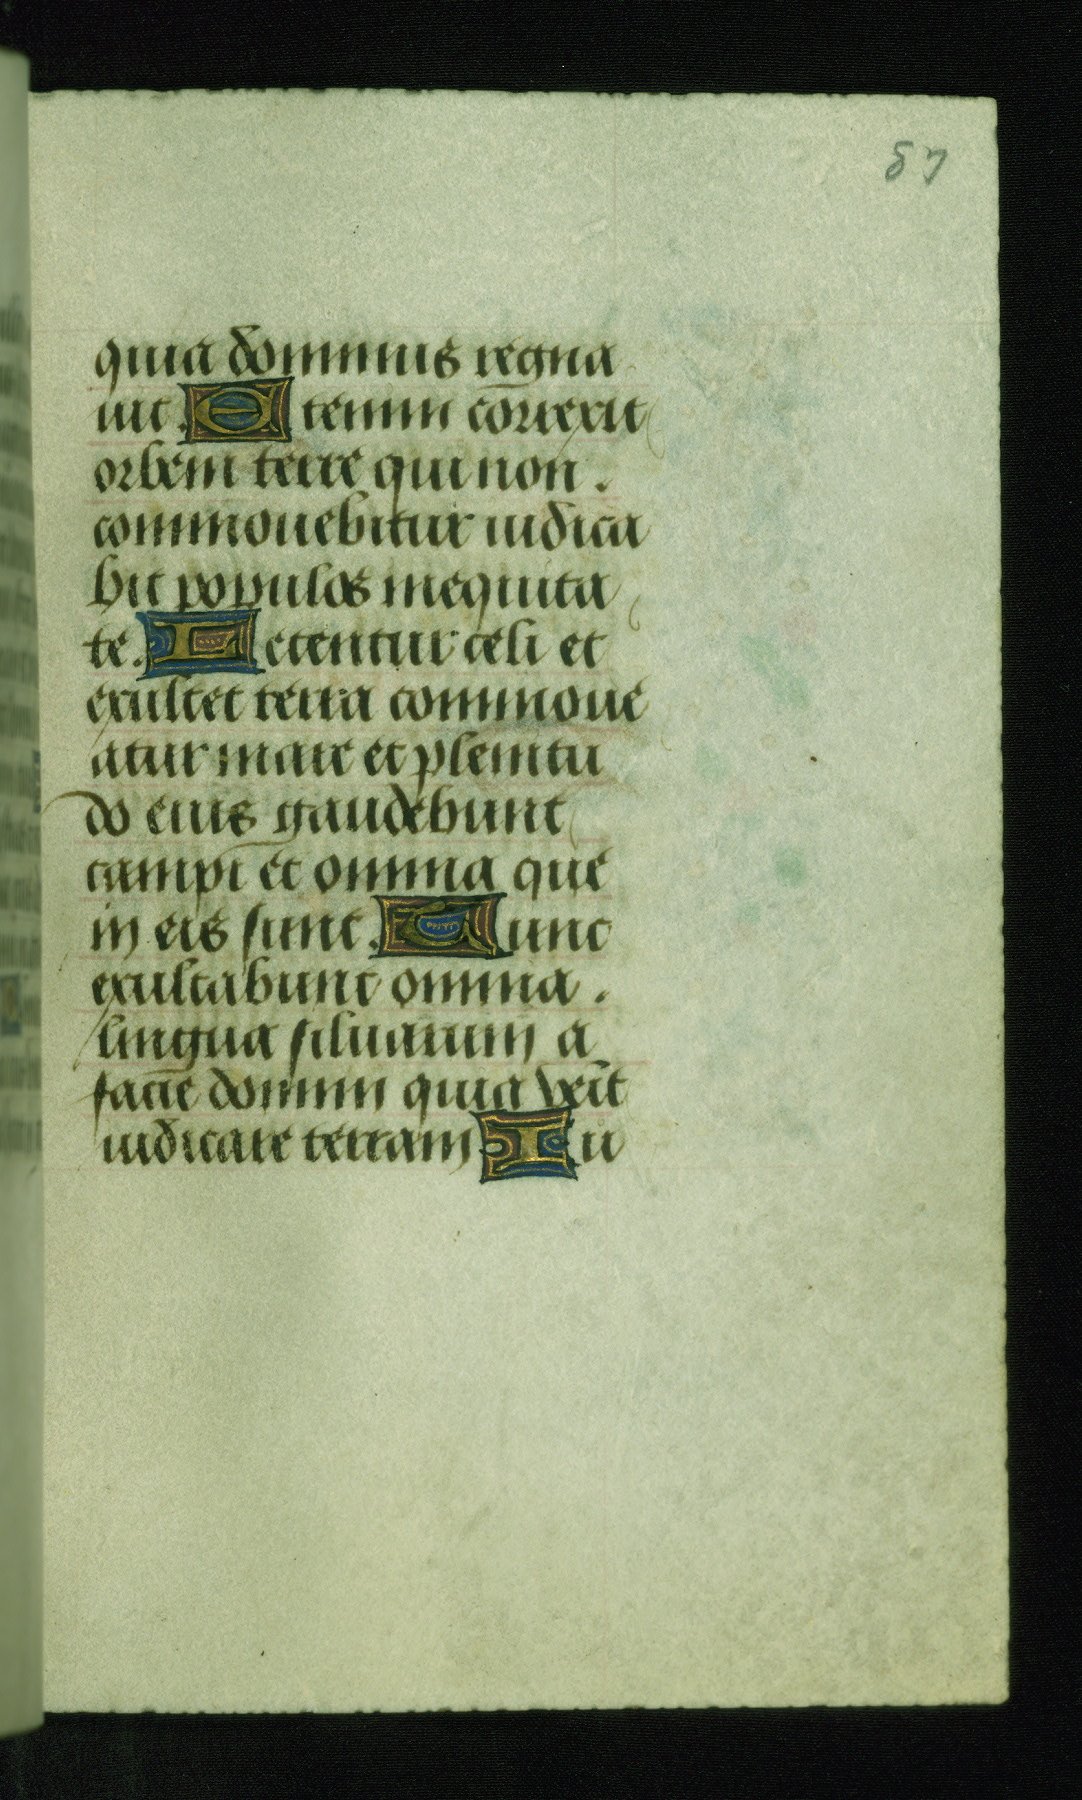 87
quia dominus regna
uit. Etenim correxit
orbem terre qui non.
commouebitur iudica
bit populos inequita
te. Letentur celi et
exultet terra commoue
atur mare et plenitu
do eius gaudebunt
campi et omnia que
in eis sunt. Tunc
exultabunt omnia.
lingua siluarum a
facie domini quia veīt
iudicare terram Iu